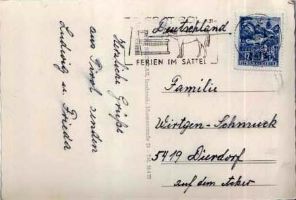 Herzliche Grüße
aus Tirol senden
Ludwig u. Frieda
Deutschland
FERIEN IM SATTEL
Familie
Wirtgen-Schmuck
5419 Dierdorf
auf dem Acker